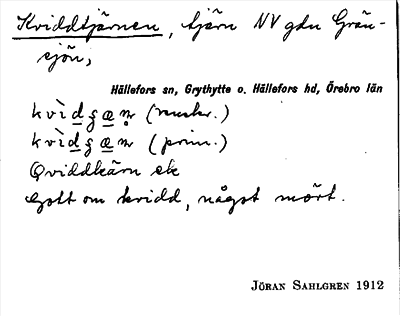 Kviddtjärnen, tjärn NV gdn Grän-
sjön,
Hällefors sn, Grythytte o. Hällefors hd, Örebro län
kvìdʒæṇ (muskr.)
kvìdʒæn (prim.)
Qviddkärn ek
Gott om kvidd, någst mört.
JÖRAN SAHLGREN 1912